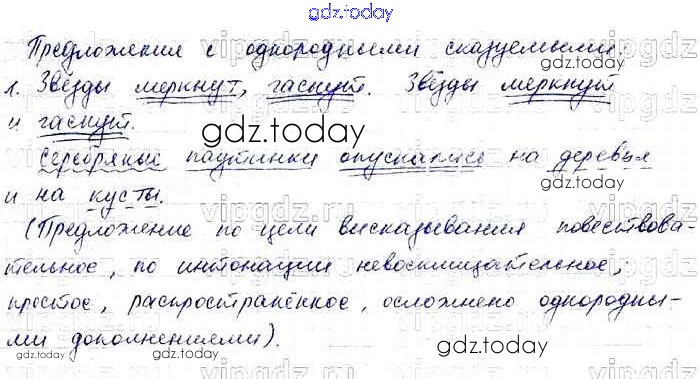 gdz.today
Предложения с однородными сказуемыми.
1. Звёзды меркнут, гаснут. Звёзды меркнут
и гаснут.
gdz.today
Серебряные паутинки опускались на деревья
gdz.today
и на кусты.
vipgdz.ru
(Предложение по цели висказывания повествова-
тельное, по интонации невосклицательное,
простое, распространённое, осложнено однородны-
ми дополнениями).
gdz.today
gdz.today
gdz.today